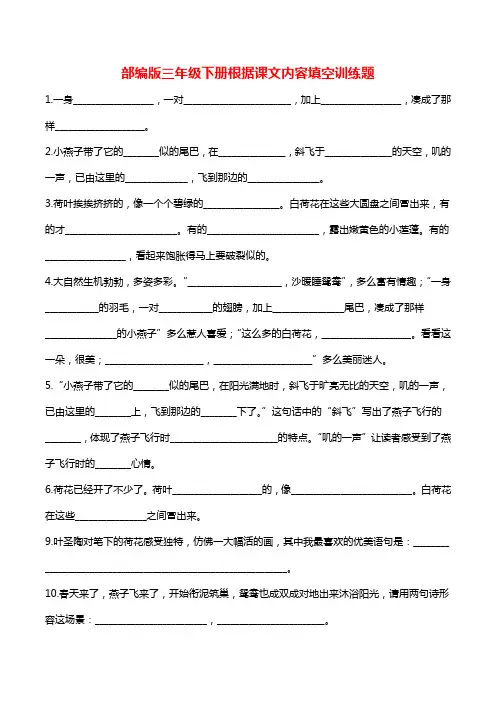 部编版三年级下册根据课文内容填空训练题
1.一身__________________，一对________________________，加上__________________，凑成了那
样____________________。
2.小燕子带了它的________似的尾巴，在_______________，斜飞于_______________的天空，叽的
一声，已由这里的______________，飞到那边的________________。
3.荷叶挨挨挤挤的，像一个个碧绿的_________________。白荷花在这些大圆盘之间冒出来，有
的才_________________________。有的_________________________，露出嫩黄色的小莲蓬。有的
__________________，看起来饱胀得马上要破裂似的。
4.大自然生机勃勃，多姿多彩。“_____________________，沙暖睡鸳鸯”，多么富有情趣；“一身
____________的羽毛，一对____________的翅膀，加上________________尾巴，凑成了那样
________________的小燕子”多么惹人喜爱；“这么多的白荷花，____________________。看看这
一朵，很美；______________________，______________________”多么美丽迷人。
5.“小燕子带了它的________似的尾巴，在阳光满地时，斜飞于旷亮无比的天空，叽的一声，
已由这里的________上，飞到那边的________下了。”这句话中的“斜飞”写出了燕子飞行的
________，体现了燕子飞行时________________________的特点。“叽的一声”让读者感受到了燕
子飞行时的________心情。
6.荷花已经开了不少了。荷叶____________________的，像___________________________。白荷花
在这些________________之间冒出来。
9.叶圣陶对笔下的荷花感受独特，仿佛一大幅活的画，其中我最喜欢的优美语句是：________
______________________________________________________。
10.春天来了，燕子飞来了，开始衔泥筑巢，鸳鸯也成双成对地出来沐浴阳光，请用两句诗形
容这场景：_________________________，________________________。